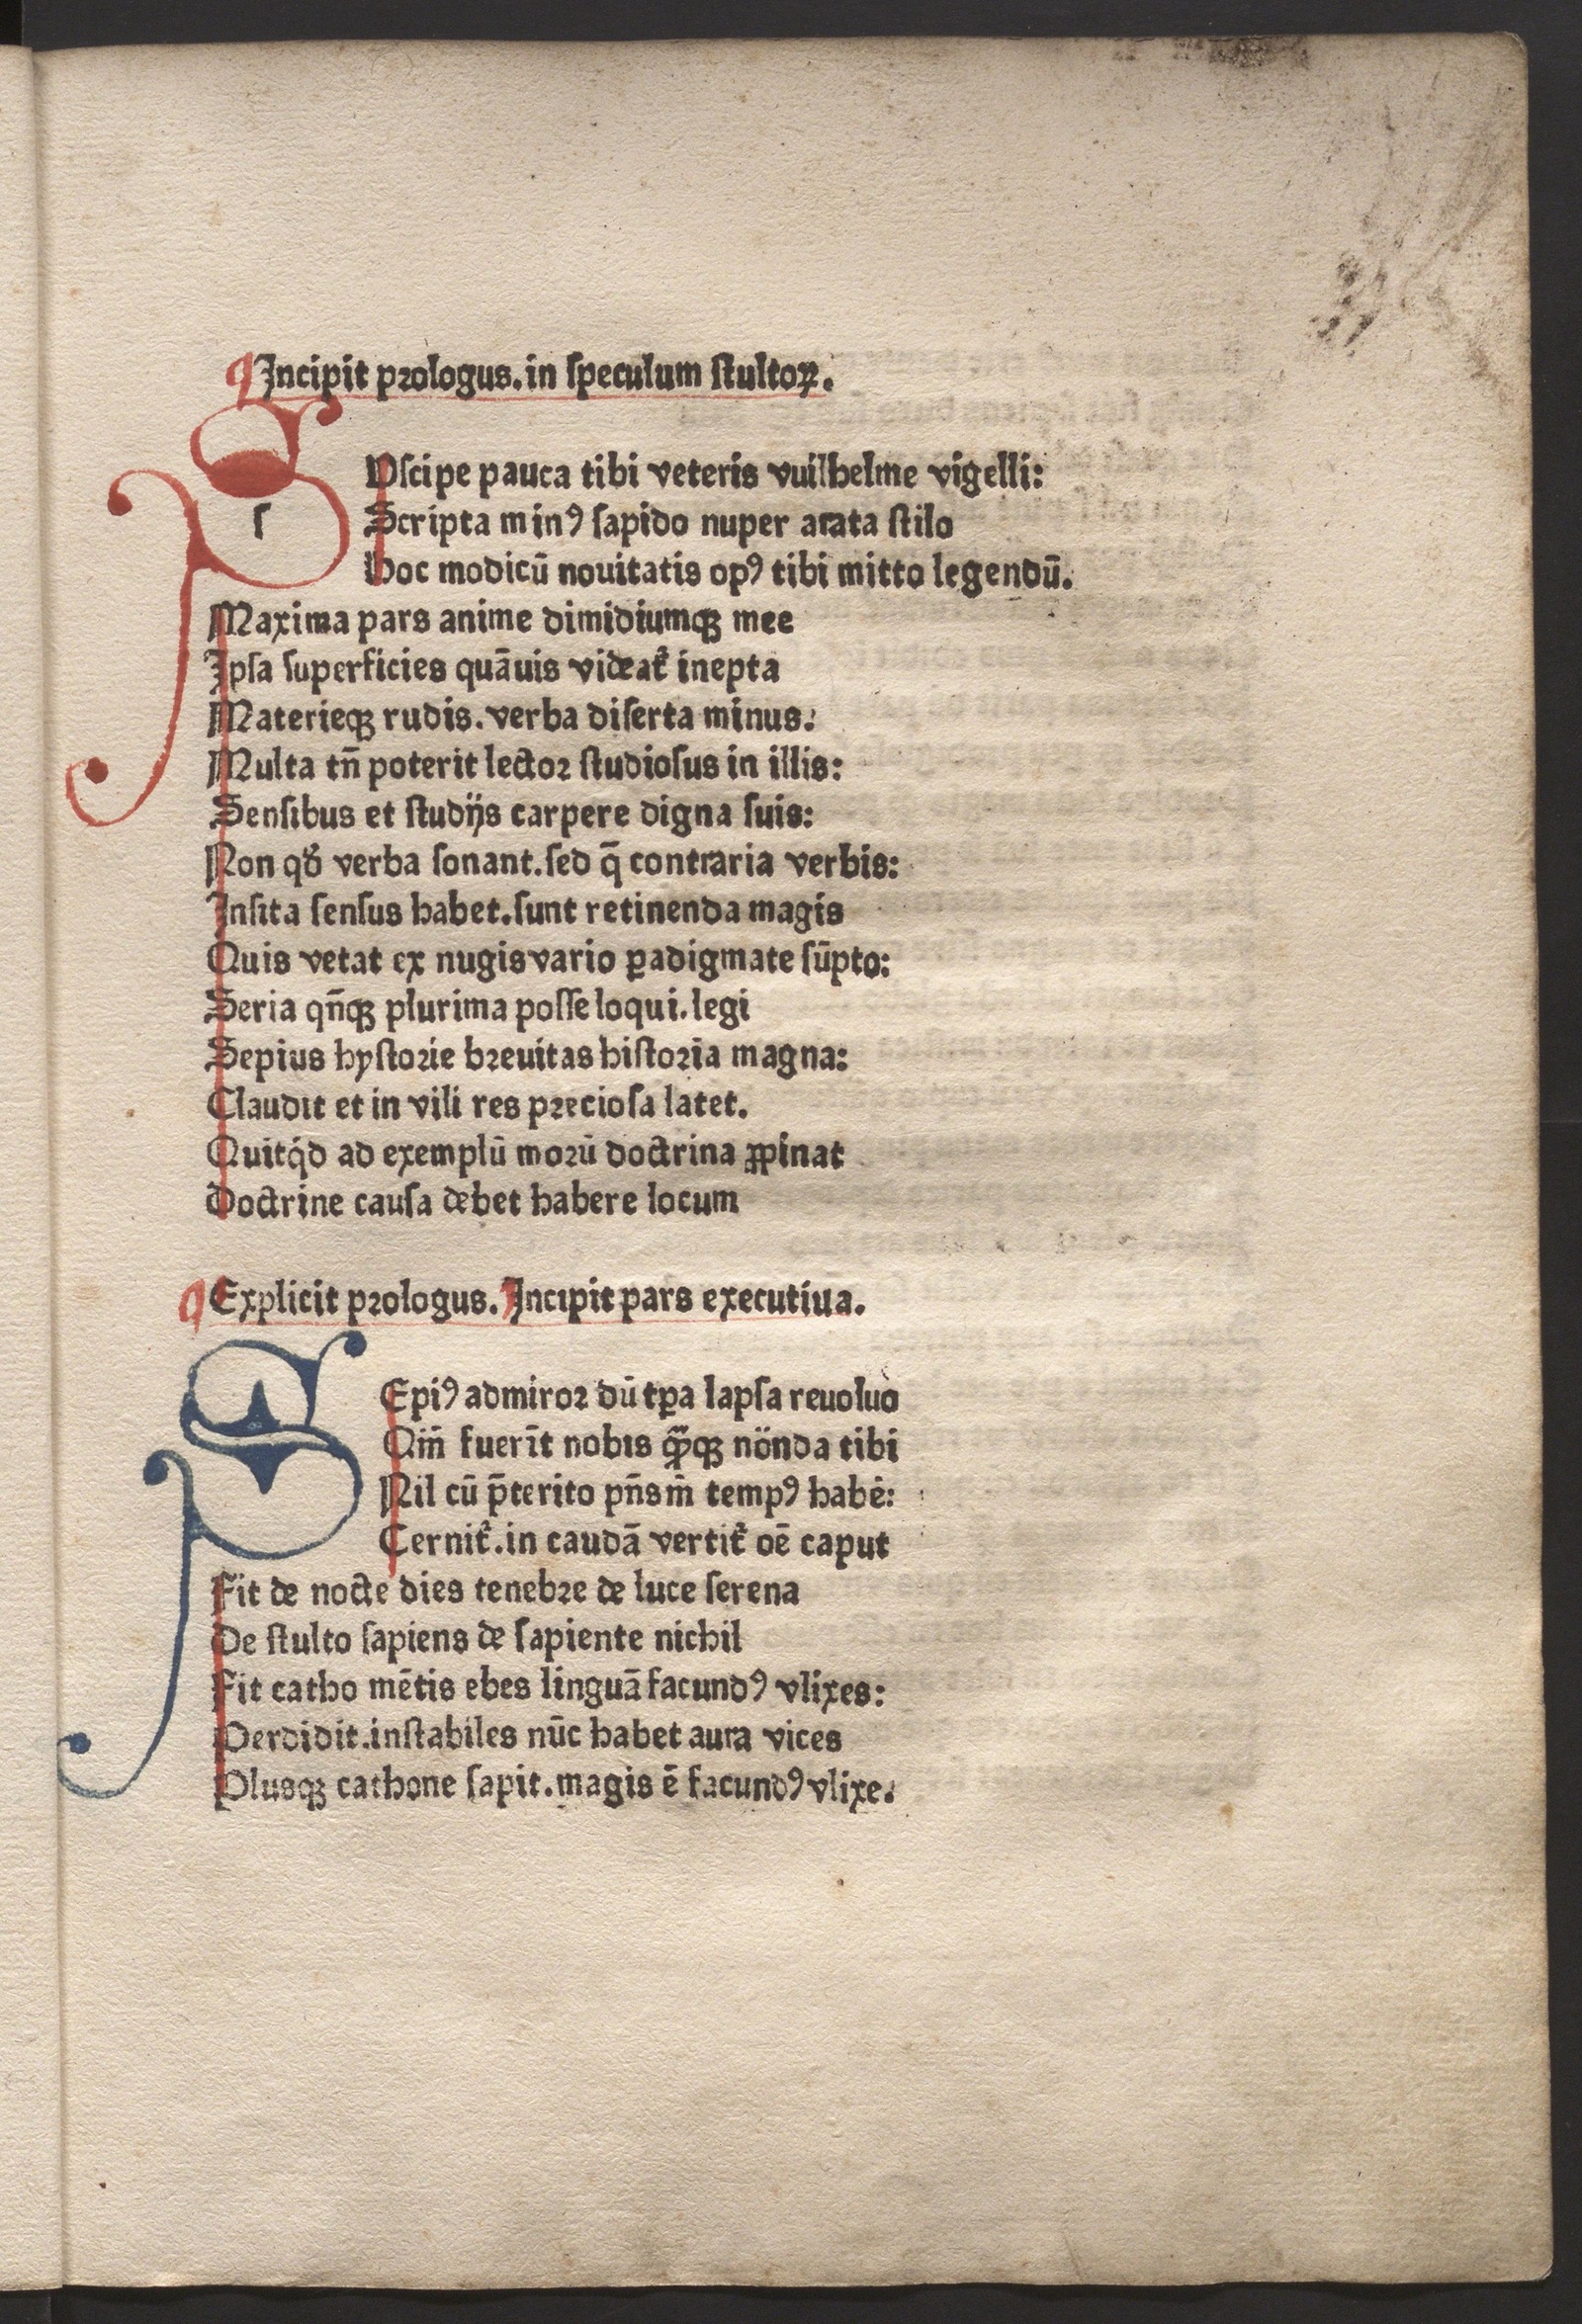 Incipit prologus. in ſpeculum ſtultoꝝ.
SVſcipe pauca tibi veteris vuilhelme vigelli:
Scripta minꝰ ſapido nuper arata ſtilo
Hoc modicū nouitatis opꝰ tibi mitto legendū.
Maxima pars anime dimidiumqꝫ mee
Ipſa ſuperficies quāuis videat᷑ inepta
Materieqꝫ rudis. verba diſerta minus.
Multa tn̄ poterit lector ſtudioſus in illis:
Senſibus et ſtudijs carpere digna ſuis:
Non qd̓ verba ſonant. ſed q̄ contraria verbis:
Inſita ſenſus habet. ſunt retinenda magis
Quis vetat ex nugis vario ꝑadigmate ſūpto:
Seria qn̄qꝫ plurima poſſe loqui. legi
Sepius hyſtorie breuitas hiſtoria magna:
Claudit et in vili res precioſa latet.
Quitq́d ad exemplū morū doctrina ꝓpinat
Doctrine cauſa debet habere locum
Explicit prologus. Incipit pars executiua.
SEpiꝰ admiror dū tꝑa lapſa reuoluo
Qm̄ fuerīt nobis qͣ̄qꝫ nōnda tibi
Nil cū p̄terito pn̄sm̄ tempꝰ habē:
Cernit᷑. in caudā vertit᷑ oē caput
Fit de nocte dies tenebre de luce ſerena
De ſtulto ſapiens de ſapiente nichil
Fit catho mētis ebes linguā facundꝰ vlixes:
Perdidit. inſtabiles nūc habet aura vices
Plusqꝫ cathone ſapit. magis ē facundꝰ vlixe.